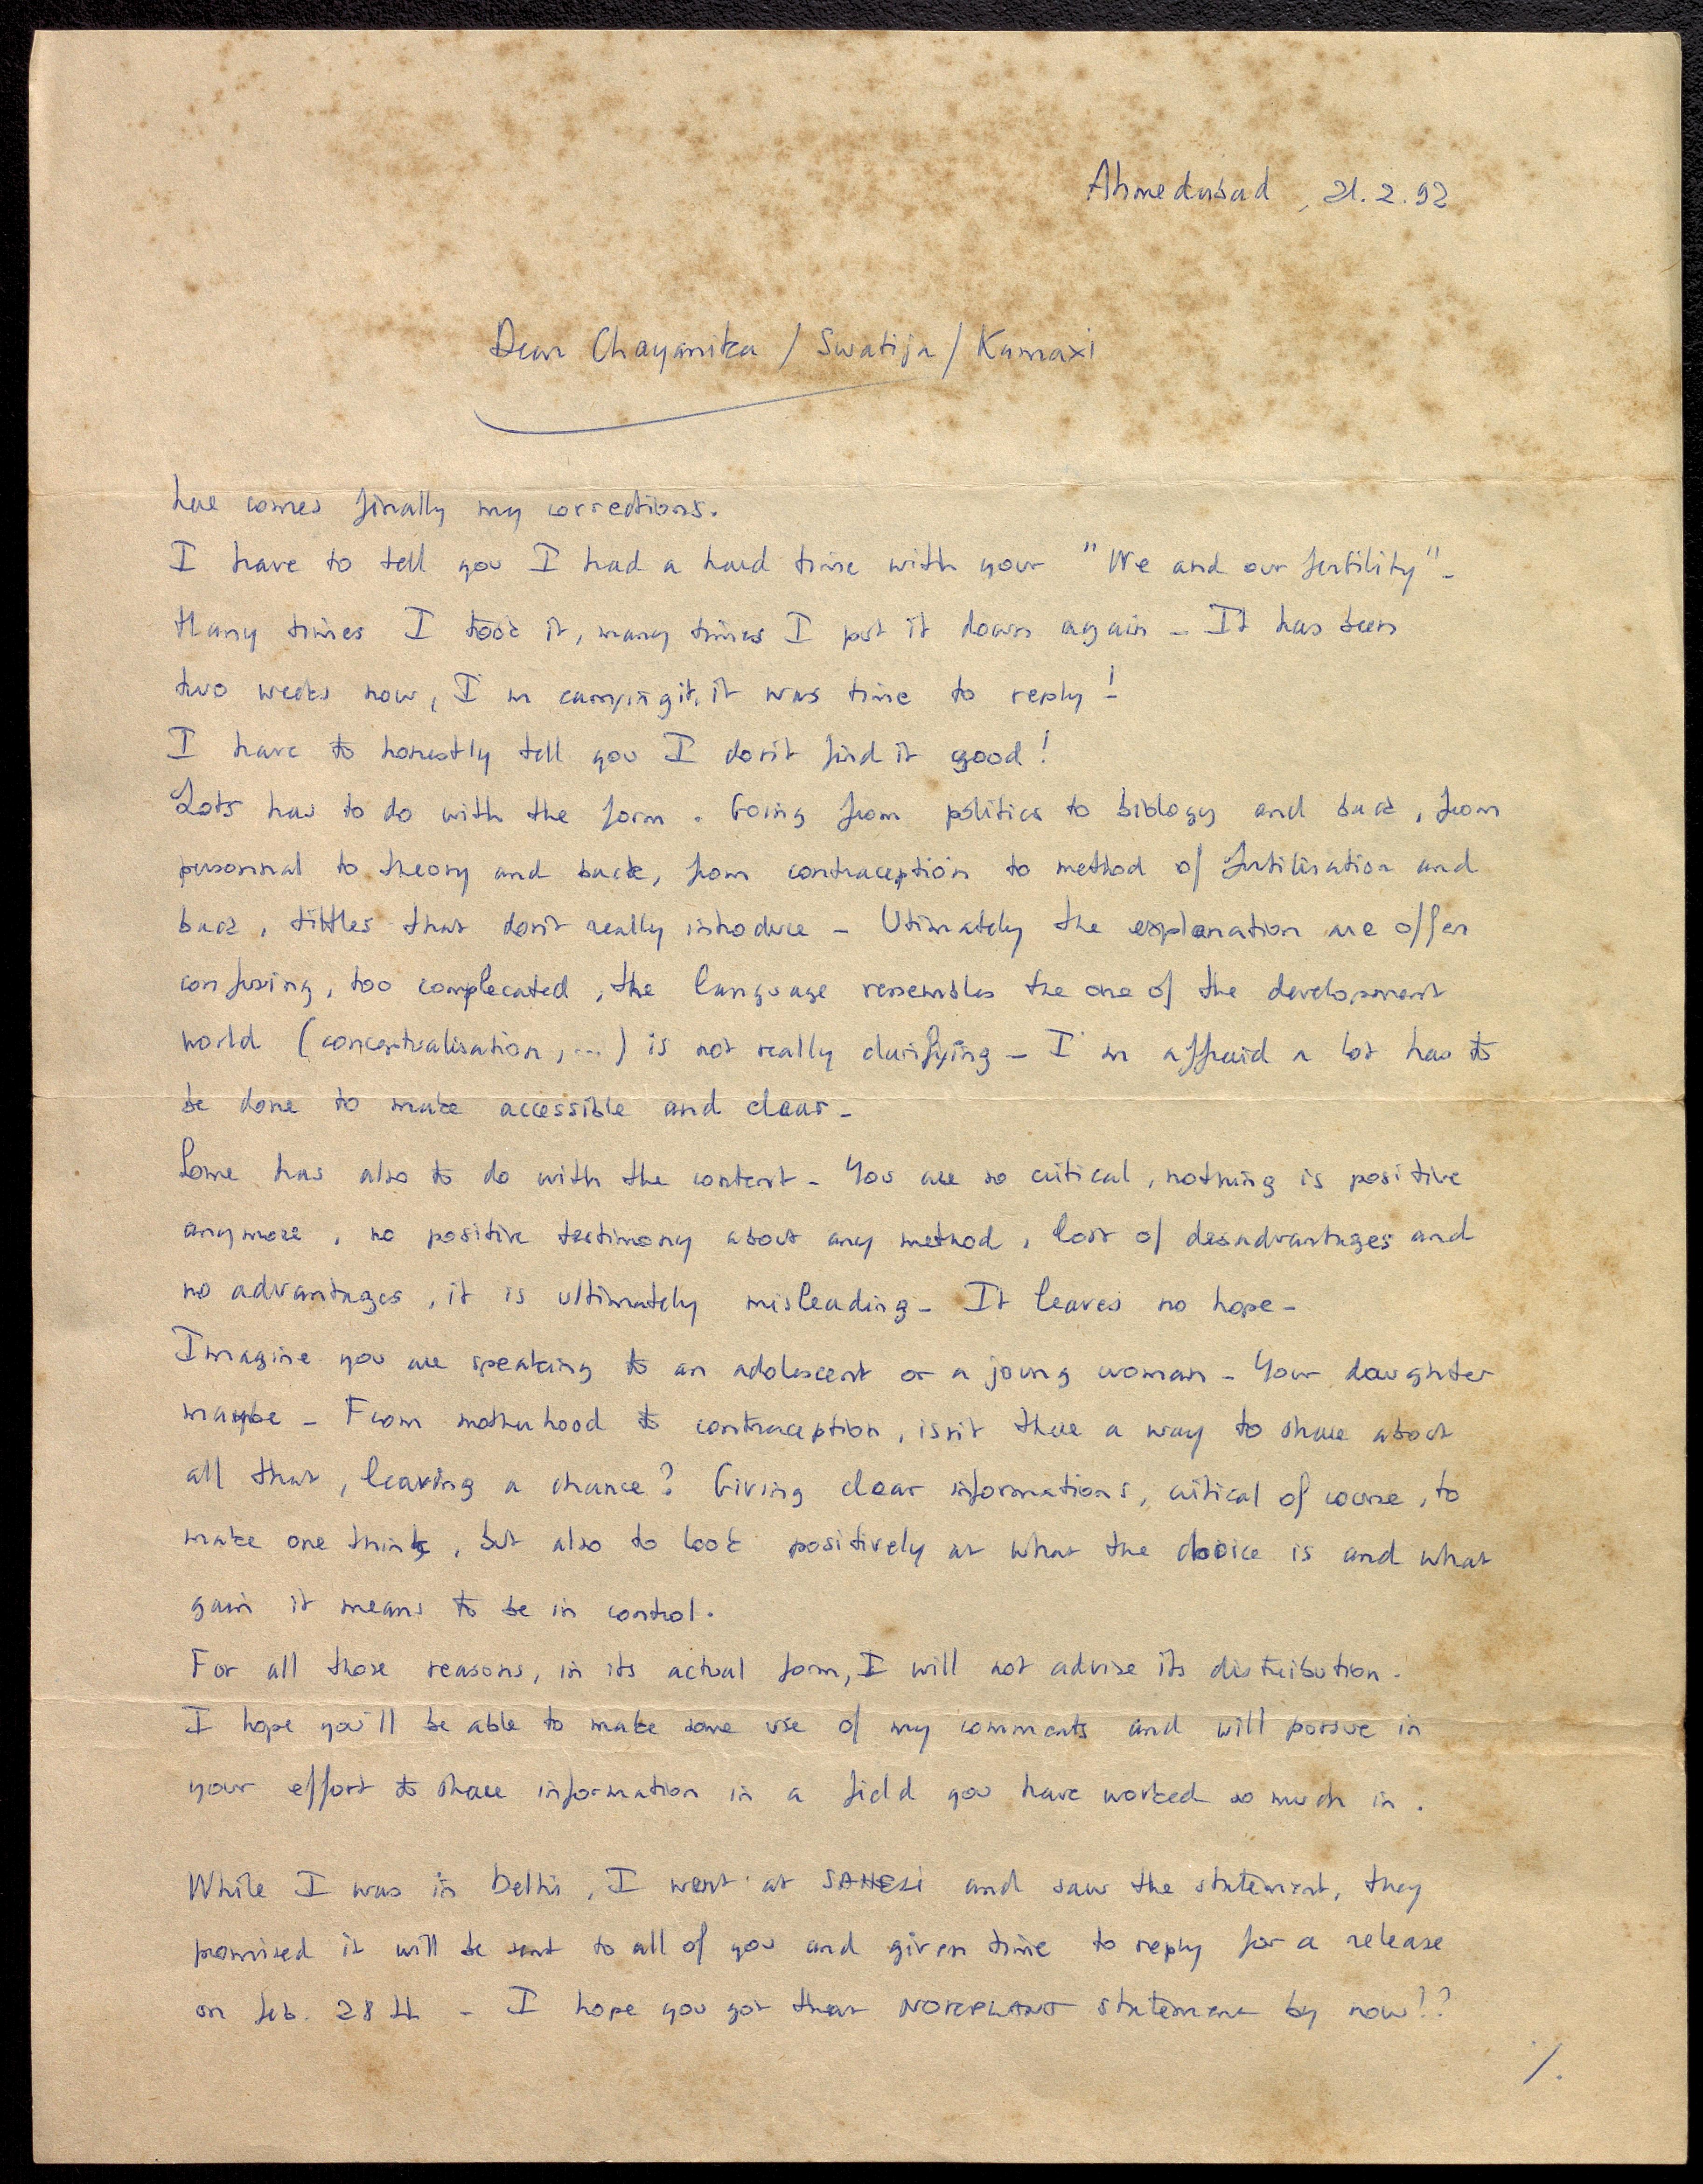 Ahmedabad, 21.2.92
Dear Chayanika / Swatija / Kamaxi
here comes finally my corrections.
I have to tell you I had a hard time with your "We and our fertility" -
Many times I took it, many times I put it down again - It has been
two weeks now, I'm carrying it, it was time to reply!
I have to honestly tell you I don't find it good!
Lots has to do with the form. Going from politics to biology and back, from
personnal to theory and back, from contraception to method of fertilisation and
back, tittles that don't really introduce - Utimately the explanation are often
confusing, too complecated, the language ressembles the one of the development
world (conceptualisation, ...) is not really clarifying - I'm affraid a lot has to
be done to make accessible and clear -
Some has also to do with the content - You are so critical, nothing is positive
anymore, no positive testimony about any method, lots of desadvantages and
no advantages, it is ultimately misleading - It leaves no hope -
Imagine you are speaking to an adolescent or a joung woman - Your daughter
maybe - From motherhood to contraception, isn't there a way to share about
all that, leaving a chance? Giving clear informations, critical of course, to
make one think, but also to look positively at what the choice is and what
gain it means to be in control.
For all those reasons, in its actual form, I will not advise its distribution.
I hope you'll be able to make some use of my comments and will porsue in
your effort to share information in a field you have worked so much in.
While I was in Delhi, I went at SAHELI and saw the statement, they
promised it will be sent to all of you and given time to reply for a release
on feb. 28th - I hope you got that NORPLANT statement by now!?
/.